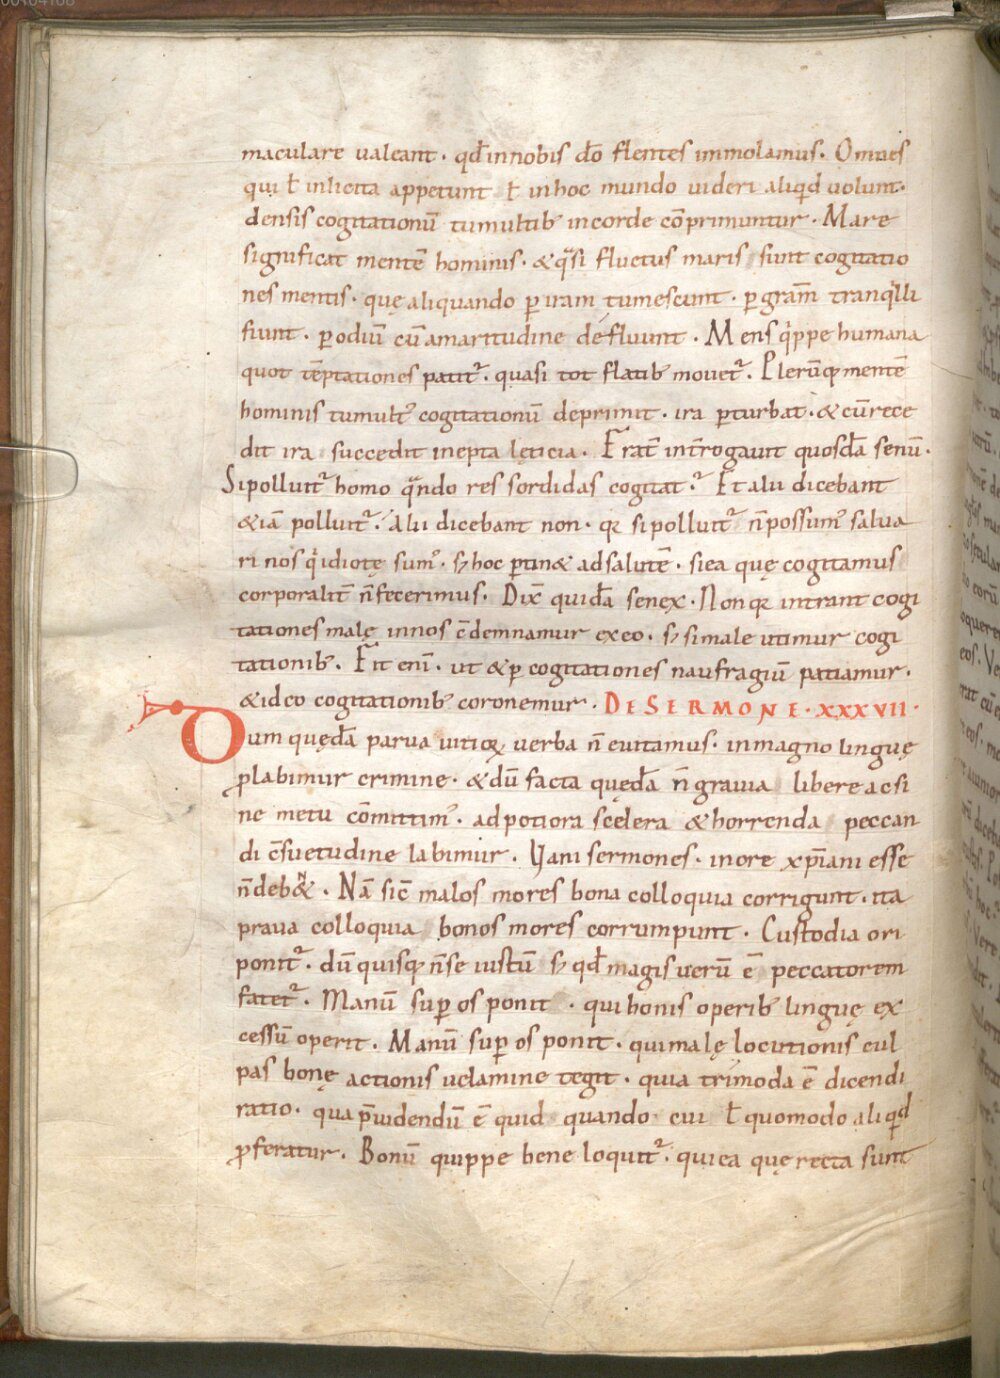 maculare ualeant · qđ innobis dõ flentes immolamus. Omnes
qui ł inlicita appetunt ł inhoc mundo uideri aliqd uolunt.
densis cogitationũ tumultib; incorde cõprimuntur. Mare
significat mentẽ hominis · &qͣsi fluctus maris sunt cogitatio
nes mentis · quę aliquando ꝑ iram tumescunt · ꝑ gratiã tranqͥlli
fiunt · ꝑ odiũ cũ amaritudine defluunt . Mens qͥppe humana
quot tẽptationes patitᷣ · quasi tot flatib; mouetᷣ. Plerũq; mentẽ
hominis tumultꝰ cogitationũ deprimit · ira ꝑturbat · & cũ rece
dit ira succedit inepta lęticia . Frat̃ int̃rogauit quosdã senũ .
Si polluitᷣ homo qͣndo res sordidas cogitat.ᷣ Et alii dicebant
&iã polluitᷣ. Alii dicebant non · qꝛ si polluitᷣ ñ possumꝰ salua
ri nos qͥ idiotę sumꝰ · sꝫ hoc ꝑtin& ad salutẽ · si ea quę cogitamus
corporalit̃ ñ fecerimus. Dix̃ quidã senex · Non qꝛ intrant cogi
tationes malę innos cõdemnamur ex eo · sꝫ si male utimur cogi
tationib; . Fit eni̅ · ut & ꝑ cogitationes naufragiũ patiamur .
&ideo cogitationib; coronemur . DE SERMONE · XXXVII ·
Dum quędã parua uitioꝝ uerba ñ euitamus · in magno linguę
ꝓlabimur crimine · & dũ facta quędã ñ grauia libere ac si
ne metu cõmittimꝰ · ad potiora scelera & horrenda peccan
di cõsuetudine labimur . Uani sermones · in ore xp̃iani esse
ñ deb& . Nã sic̃ malos mores bona colloquia corrigunt · ita
praua colloquia bonos mores corrumpunt . Custodia ori
ponitᷣ · dũ quisq; ñ se iustũ sꝫ qđ magis uerũ ẽ peccatorem
fatetᷣ . Manũ suꝑ os ponit · qui bonis operib; linguę ex
cessũ operit . Manũ suꝑ os ponit · qui malę locutionis cul
pas bonę actionis uelamine tegit · quia trimoda ẽ dicendi
ratio · qua p̃uidendũ ẽ quid quando cui ł quomodo aliqd
ꝓferatur . Bonũ quippe bene loquitᷣ · qui ea quę recta sunt